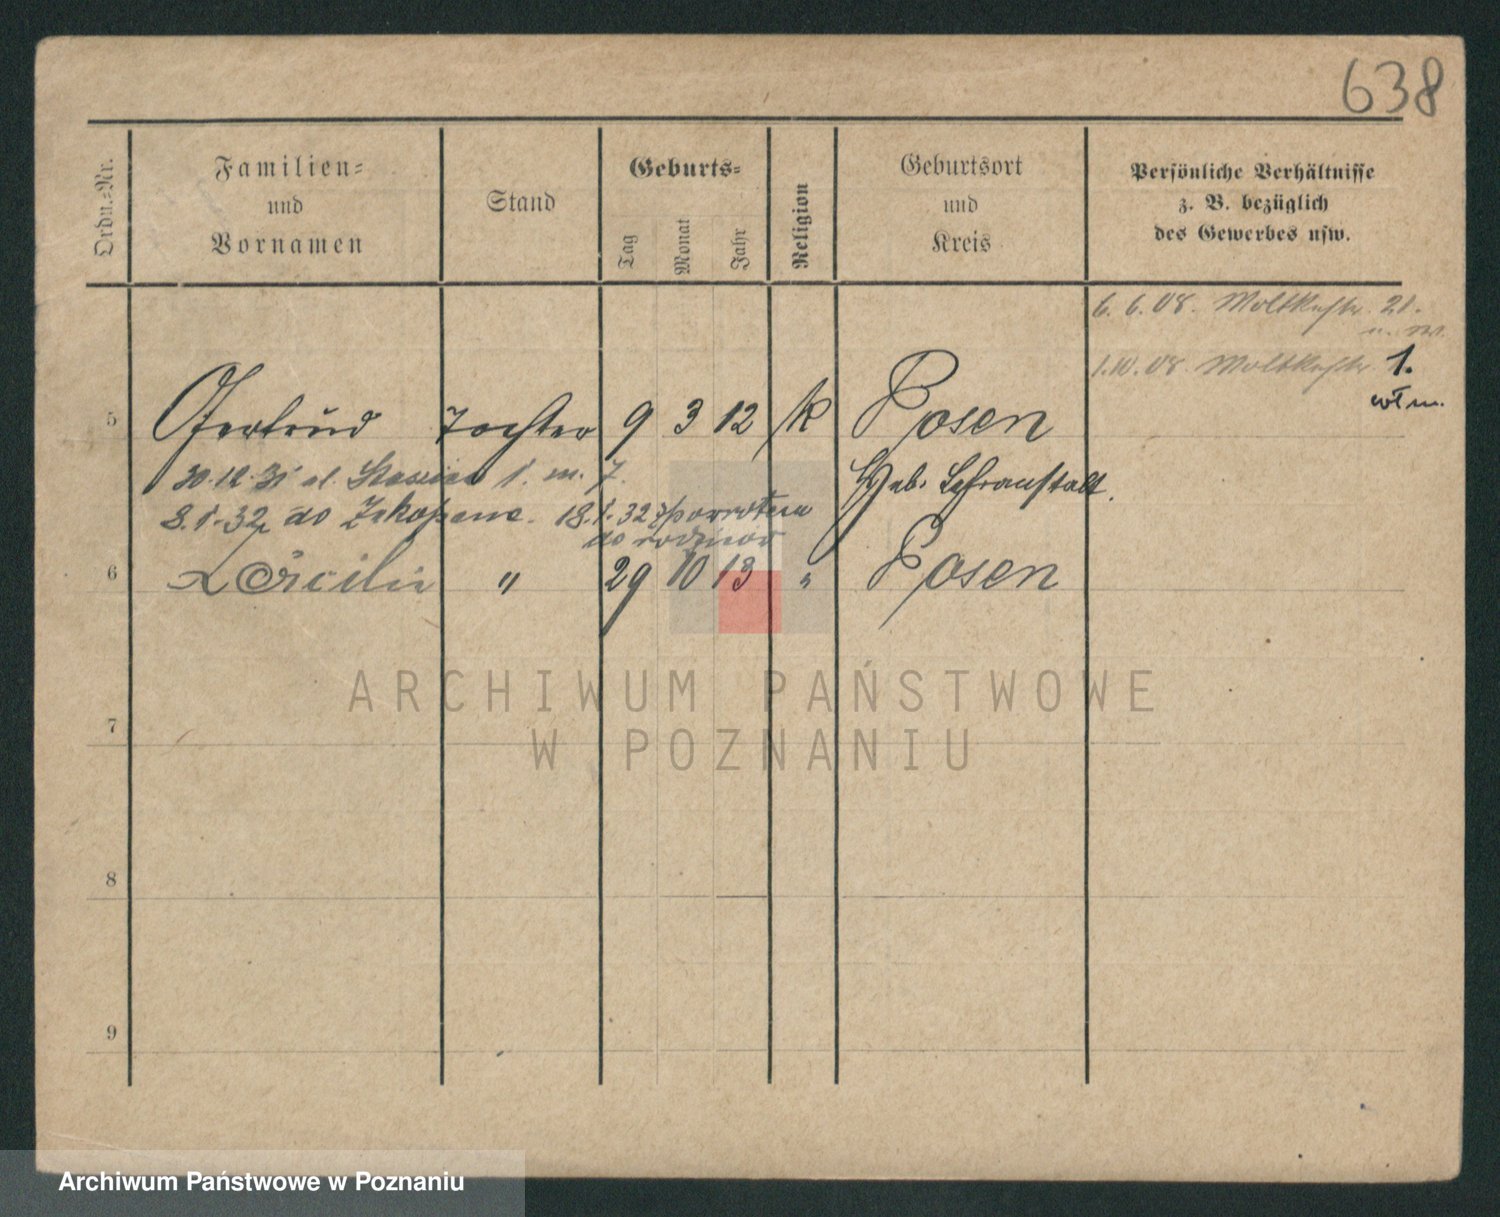 638
Ordn.=Nr.
Familien=
und
Vornamen
Stand
Geburts=
Tag
Monat
Jahr
Religion
Geburtsort
und
Kreis
Persönliche Verhältnisse
z. B. bezüglich
des Gewerbes usw.
6. 6. 08. Moltkestr. 21.
1. 10. 08. Moltkestr. 1.
5 Gertrud Tochter 9 3 12 K Posen
30.12.31 1. m. 7.
Heb. Lehranstalt.
8.1.32 do Zakopane. 18.1.32 z powrotem
do rodziców
6 Cäcilie " 29 10 13 " Posen
7
8
9
ARCHIWUM PAŃSTWOWE
W POZNANIU
Archiwum Państwowe w Poznaniu